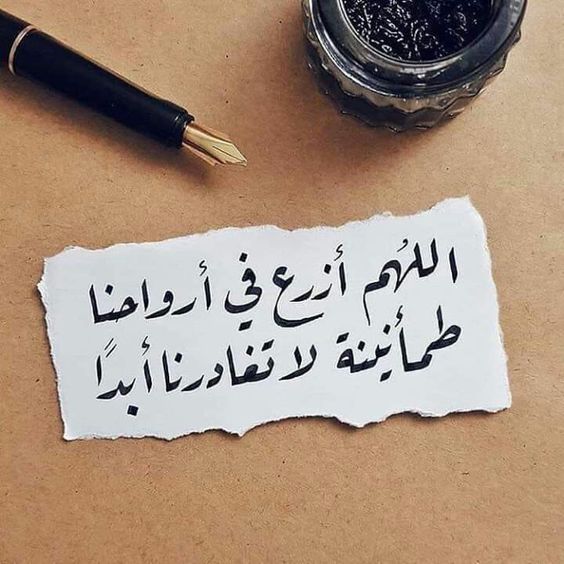 اللهُم أزرع في أرواحنا
طمأنينة لا تغادرنا أبدًا